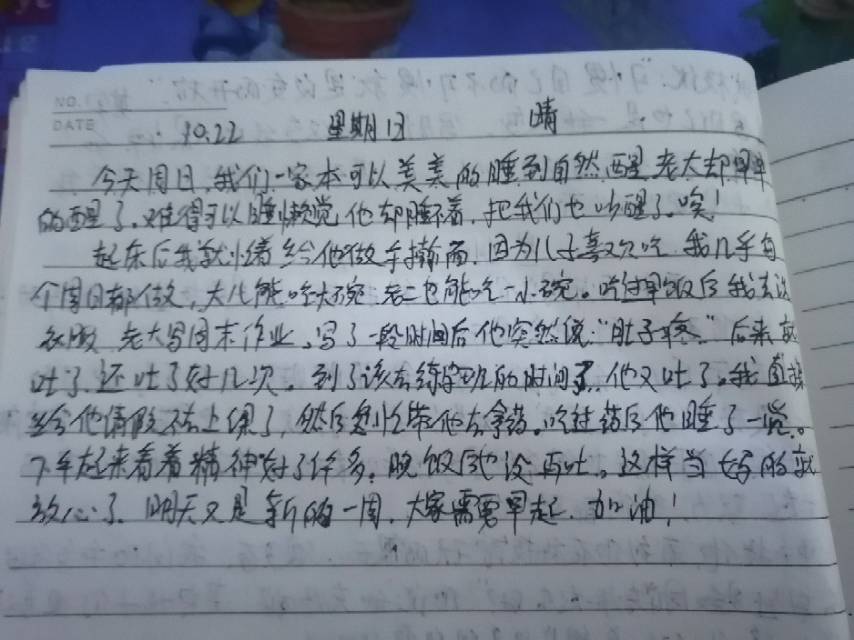 NO.
DATE 10.22 星期日 晴
今天周日,我们一家本可以美美的睡到自然醒,老大却早早
的醒了。难得可以睡懒觉他却睡不着,把我们也吵醒了。唉!
起床后我就忙着给他做手擀面,因为儿子喜欢吃,我几乎每
个周日都做,大儿能吃大碗,老二也能吃一小碗。吃过早饭后我去洗
衣服,老大写周末作业。写了一段时间后他突然说:"肚子疼"后来就
吐了,还吐了好几次。到了该去练字班的时间了,他又吐了。我直接
给他请假不去上课了,然后急忙带他去拿药。吃过药后他睡了一觉。
下午起来看着精神好了许多,晚饭后也没再吐。这样当妈的就
放心了。明天又是新的一周,大家需要早起,加油!